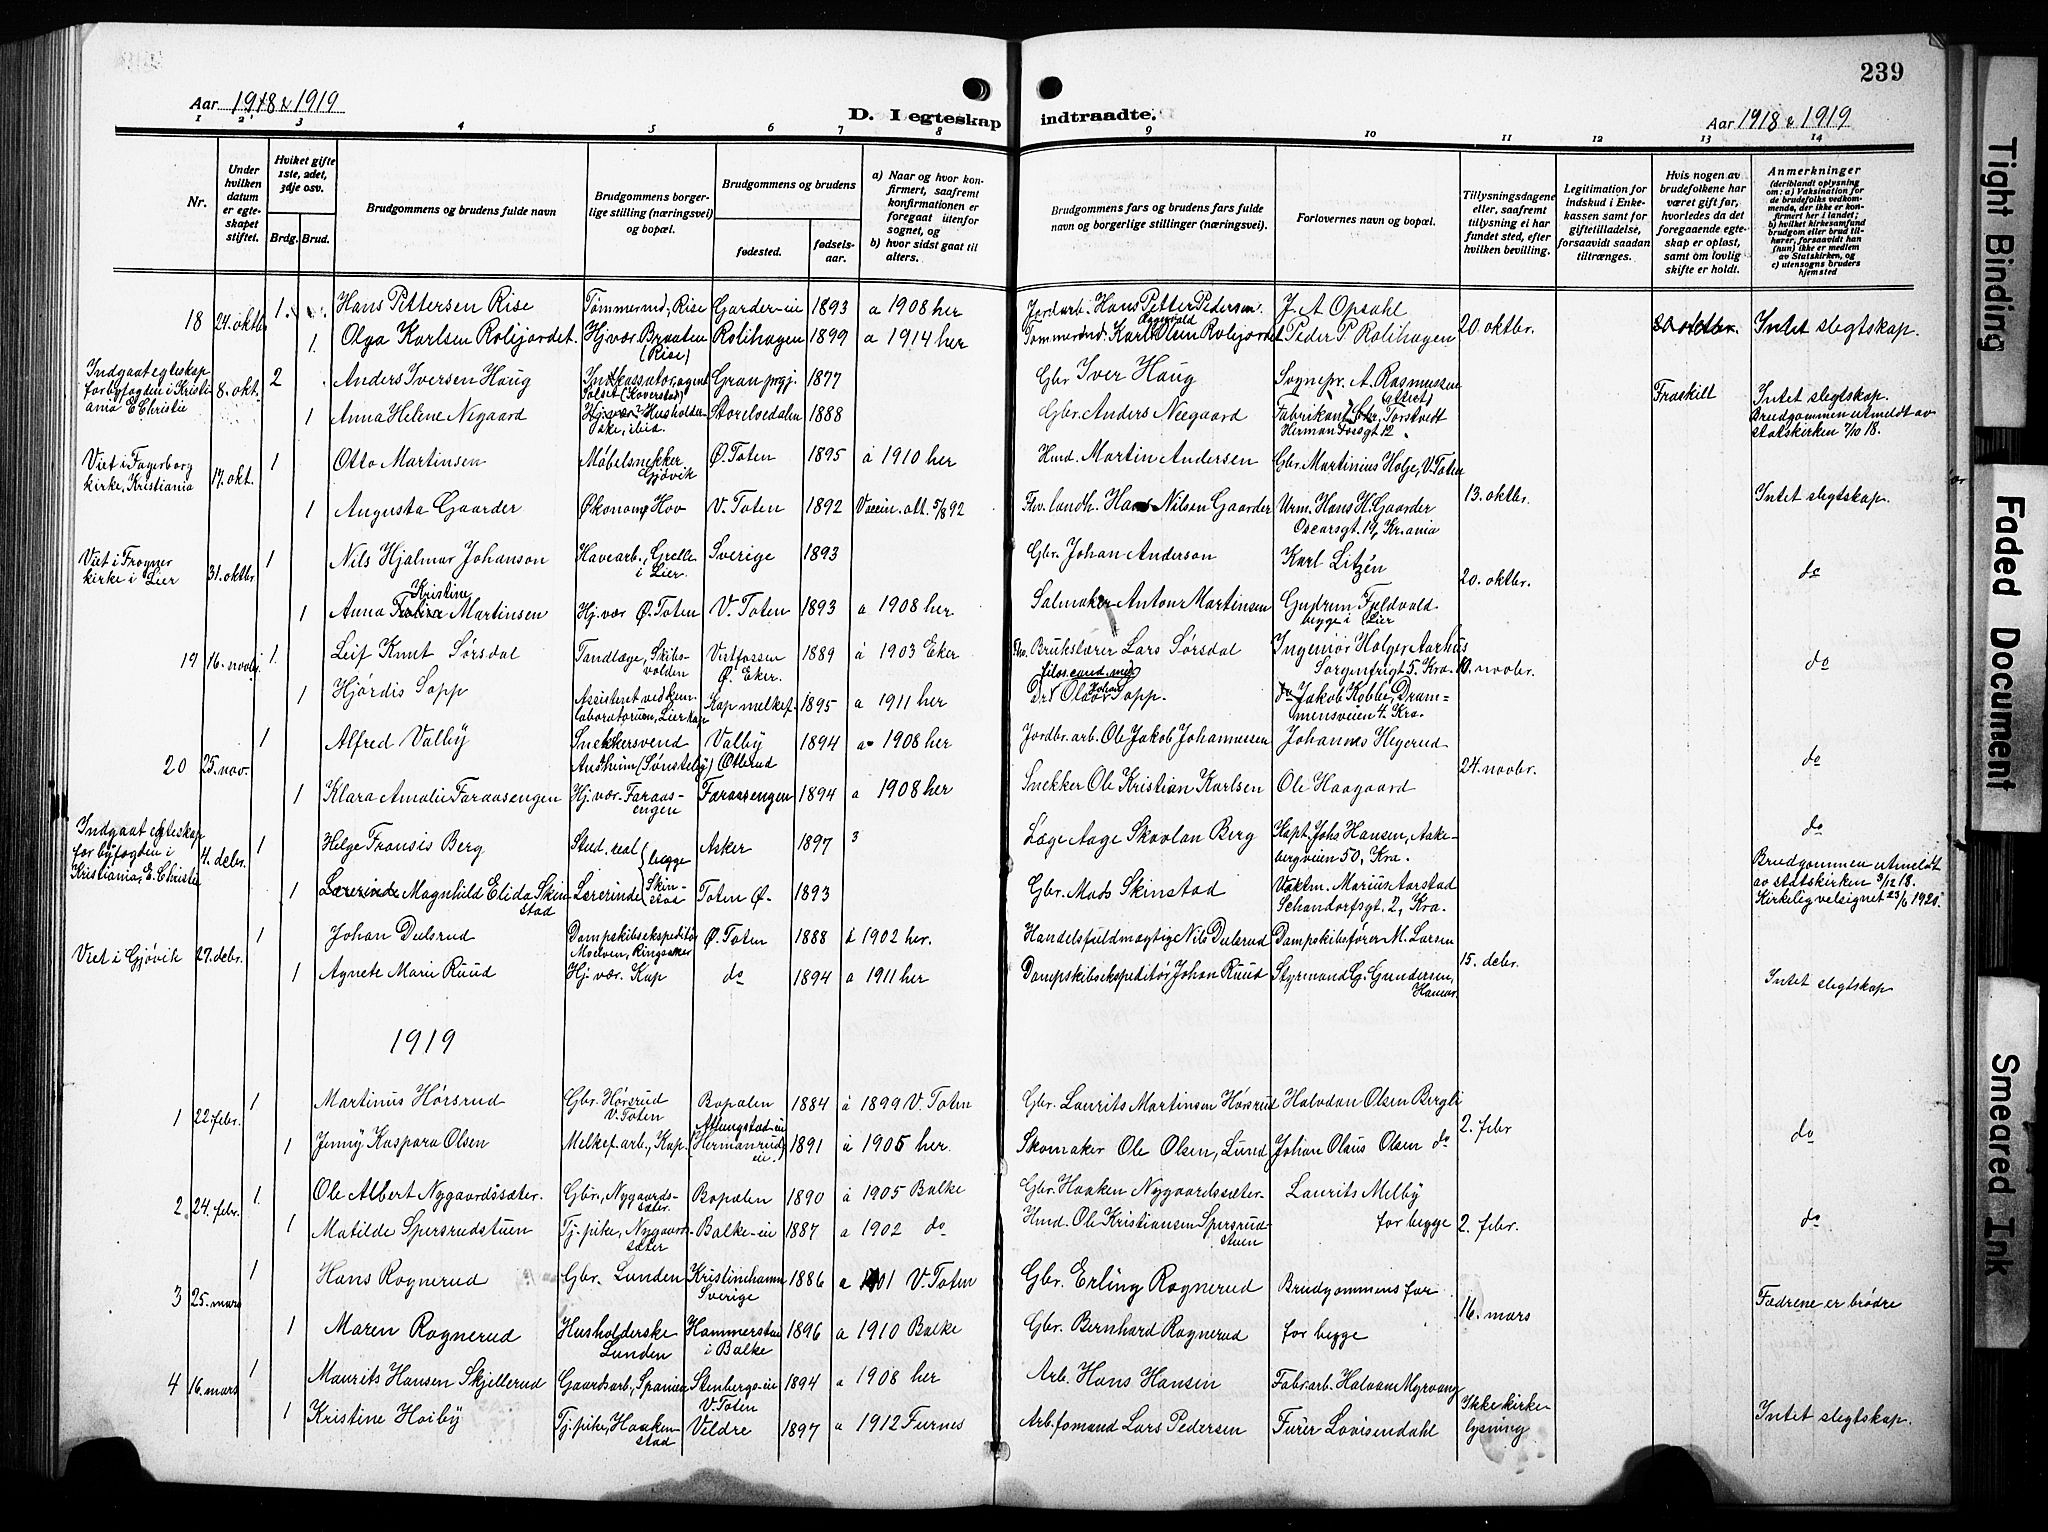 239
Aar 1918 & 1919
D. I egteskap indtraadte.
Aar 1918 & 1919
1 2 3 4 5 6 7 8 9 10 11 12 13 14
Nr.
Under hvilken datum er egteskapet stiftet.
Hvilket gifte 1ste, 2det, 3dje osv.
Brdg. Brud.
Brudgommens og brudens fulde navn
Brudgommens borgerlige stilling (næringsvei) og bopæl.
Brudgommens og brudens
fødested. fødselsaar.
a) Naar og hvor konfirmert, saafremt konfirmationen er foregaat utenfor sognet, og
b) hvor sidst gaat til alters.
Brudgommens fars og brudens fars fulde navn og borgerlige stillinger (næringsvei).
Forlovernes navn og bopæl.
Tillysningsdagene eller, saafremt tillysning ei har fundet sted, efter hvilken bevilling.
Legitimation for indskud i Enkekassen samt for giftetilladelse, forsaavidt saadan tiltrænges.
Hvis nogen av brudefolkene har været gift før, hvorledes da det foregaaende egteskap er opløst, samt om lovlig skifte er holdt.
Anmerkninger
(deriblandt oplysning om: a) Vaksination for de brudefolks vedkommende, der ikke er konfirmert her i landet; b) hvilket kirkesamfund brudgom eller brud tilhører, forsaavidt han (hun) ikke er medlem av Statskirken, og c) utensogns bruders hjemsted
18 24. oktbr 1. Hans Pettersen Rise Tømmermd, Rise Garder-eie 1893 a 1908 her Jordarb. Hans Petter Pedersen J. A. Opsahl
1. Olga Karlsen Rolijordet Hj. vær. Braaten (Rise) Rolihagen 1899 a 1914 her Tømmermd. Karl Olsen Rolijordet Peder P. Rolihagen 20. oktbr. 20 oktbr. Intet slegtskap.
Indgaat egteskap for byfogden i Kristiania E. Christie 8. okt. 2 Anders Iversen Haug Inkassator, agent Gran prgj. 1877 Gbr Iver Haug Sognepr. A. Rasmussen Fraskilt Intet slegtskap.
1 Anna Helene Negaard Hj. vær. Husholderske, ibid. Storelvedalen 1888 Gbr. Anders Neegaard Fabrikant Chr. Torstvedt Herman Fossgt 12 Brudgommen utmeldt av statskirken 7/10 18.
Viet i Fagerborg kirke, Kristiania 17. okt. 1 Otto Martinsen Møbelsnekker Gjøvik Ø. Toten 1895 a 1910 her Hmd. Martin Andersen Gbr. Martinius Holje, V. Toten
1 Augusta Gaarder Økonom Hov V. Toten 1892 Vaccin. att. 5/8 92 Fhv. landh. Hans Nilsen Gaarder Urm. Hans H. Gaarder Oscarsgt. 19, Kr.ania 13. oktbr. Intet slegtskap.
Viet i Frogner kirke i Lier 31. oktbr 1 Nils Hjalmar Johanson Havearb., Grette i Lier. Sverige 1893 Gbr. Johan Anderson Karl Litzén 20. oktbr. do
1 Anna Kristine Martinsen Hj. vær Ø. Toten V. Toten 1893 a 1908 her Salmaker Anton Martinsen Gudrun Fjeldvald begge i Lier
19 16. novbr. 1. Leif Knut Sørsdal Tandlæge, Skibsvolden Vestfossen Ø. Eker. 1889 a 1903 Eker Fhv. Brukseier Lars Sørsdal Ingeniør Holger Aarhus Sorgenfrigt 5. Kra. 10. novbr. do
1 Hjørdis Sopp Assistent ved kem. laboratorium, Lier Kap Kap melkef. 1895 a 1911 her Dr. Olav Johan Sopp. do Jakob Kobbe, Drammensveien 4. Kra.
20 25. nov. 1 Alfred Valby Snekkersvend Austheim (Sønsteby) Valby Øtterud 1894 a 1908 her Jordbr. arb. Ole Jakob Johannesen Johannes Hegerud 24. novbr. do
1 Klara Amalie Faraasengen Hj. vær. Faraasengen Faraasengen 1894 a 1908 her Snekker Ole Kristian Karlsen Ole Haagaard
Indgaat egteskap for byfogden i Kristiania, E. Christie 4. debr. 1 Helge Fransis Berg Stud. real Asker 1897 Læge Aage Skavlan Berg Kapt. Johs Hansen, Aakebergveien 50, Kra. do
1 Magnhild Elida Skinstad Lærerinde begge Skinstad Toten Ø. 1893 Gbr. Mads Skinstad Vaktm. Marius Aarstad Schandorfsgt. 2, Kra. Brudgommen utmeldt av statskirken 3/12 18. Kirkelig velsignet 23/6 1920.
Viet i Gjøvik 27. debr. 1 Johan Dulsrud Dampskibsekspeditør Moelven, Ringsaker Ø. Toten 1888 a 1902 her. Handelsfuldmægtig Nils Dulsrud Dampskibsfører M. Larsen 15. debr.
1 Agnete Marie Ruud Hj. vær. Kap do 1894 a 1911 her Dampskibsekspeditør Johan Ruud Styrmand G. Gundersen, Hamar. Intet slegtskap
1919
1 22. febr. 1 Martinus Hørsrud Gbr. Hørsrud V. Toten Bopælen 1884 a 1899 V. Toten Gbr. Laurits Martinsen Hørsrud Halvdan Olsen Bergli 2. febr do
1 Jenny Kaspara Olsen Melkef. arb., Kap. Hermanrud eie. 1891 a 1905 her. Skomaker Ole Olsen, Lund Johan Olaus Olsen do
2. 24. febr. 1. Ole Albert Nygaardssæter. Gbr., Nygaardssæter. Bopælen 1890 a 1905 Balke Gbr. Haaken Nygaardssæter Laurits Melby 2. febr. do
1 Matilde Spersrudstuen Tj. pike, Nygaardssæter Balke-eie 1887 a 1902 do Hmd. Ole Kristiansen Spersrudstuen for begge
3 25. mars 1 Hans Rognerud Gbr. Lunden Kristinehamn Sverige 1886 a 1901 V. Toten Gbr. Erling Rognerud Brudgommens far 16. mars Fædrene er brødre
1 Maren Rognerud Husholderske Lunden Hammerstad i Balke 1896 a 1910 Balke Gbr. Bernhard Rognerud for begge
4 16. mars 1 Maurits Hansen Skjellerud Gaardsarb., Stenbergs-eie V. Toten 1894 a 1908 her Arb. Hans Hansen Fabr. arb. Halvdan Myrvang Ikke kirkelysning
1 Kristine Hoiby Tj. pike, Haakenstad Veldre 1897 a 1912 Furnes Arb. formand Lars Pedersen Furer Lovisendahl Intet slegtskap.
Tight Binding
Faded Document
Smeared Ink